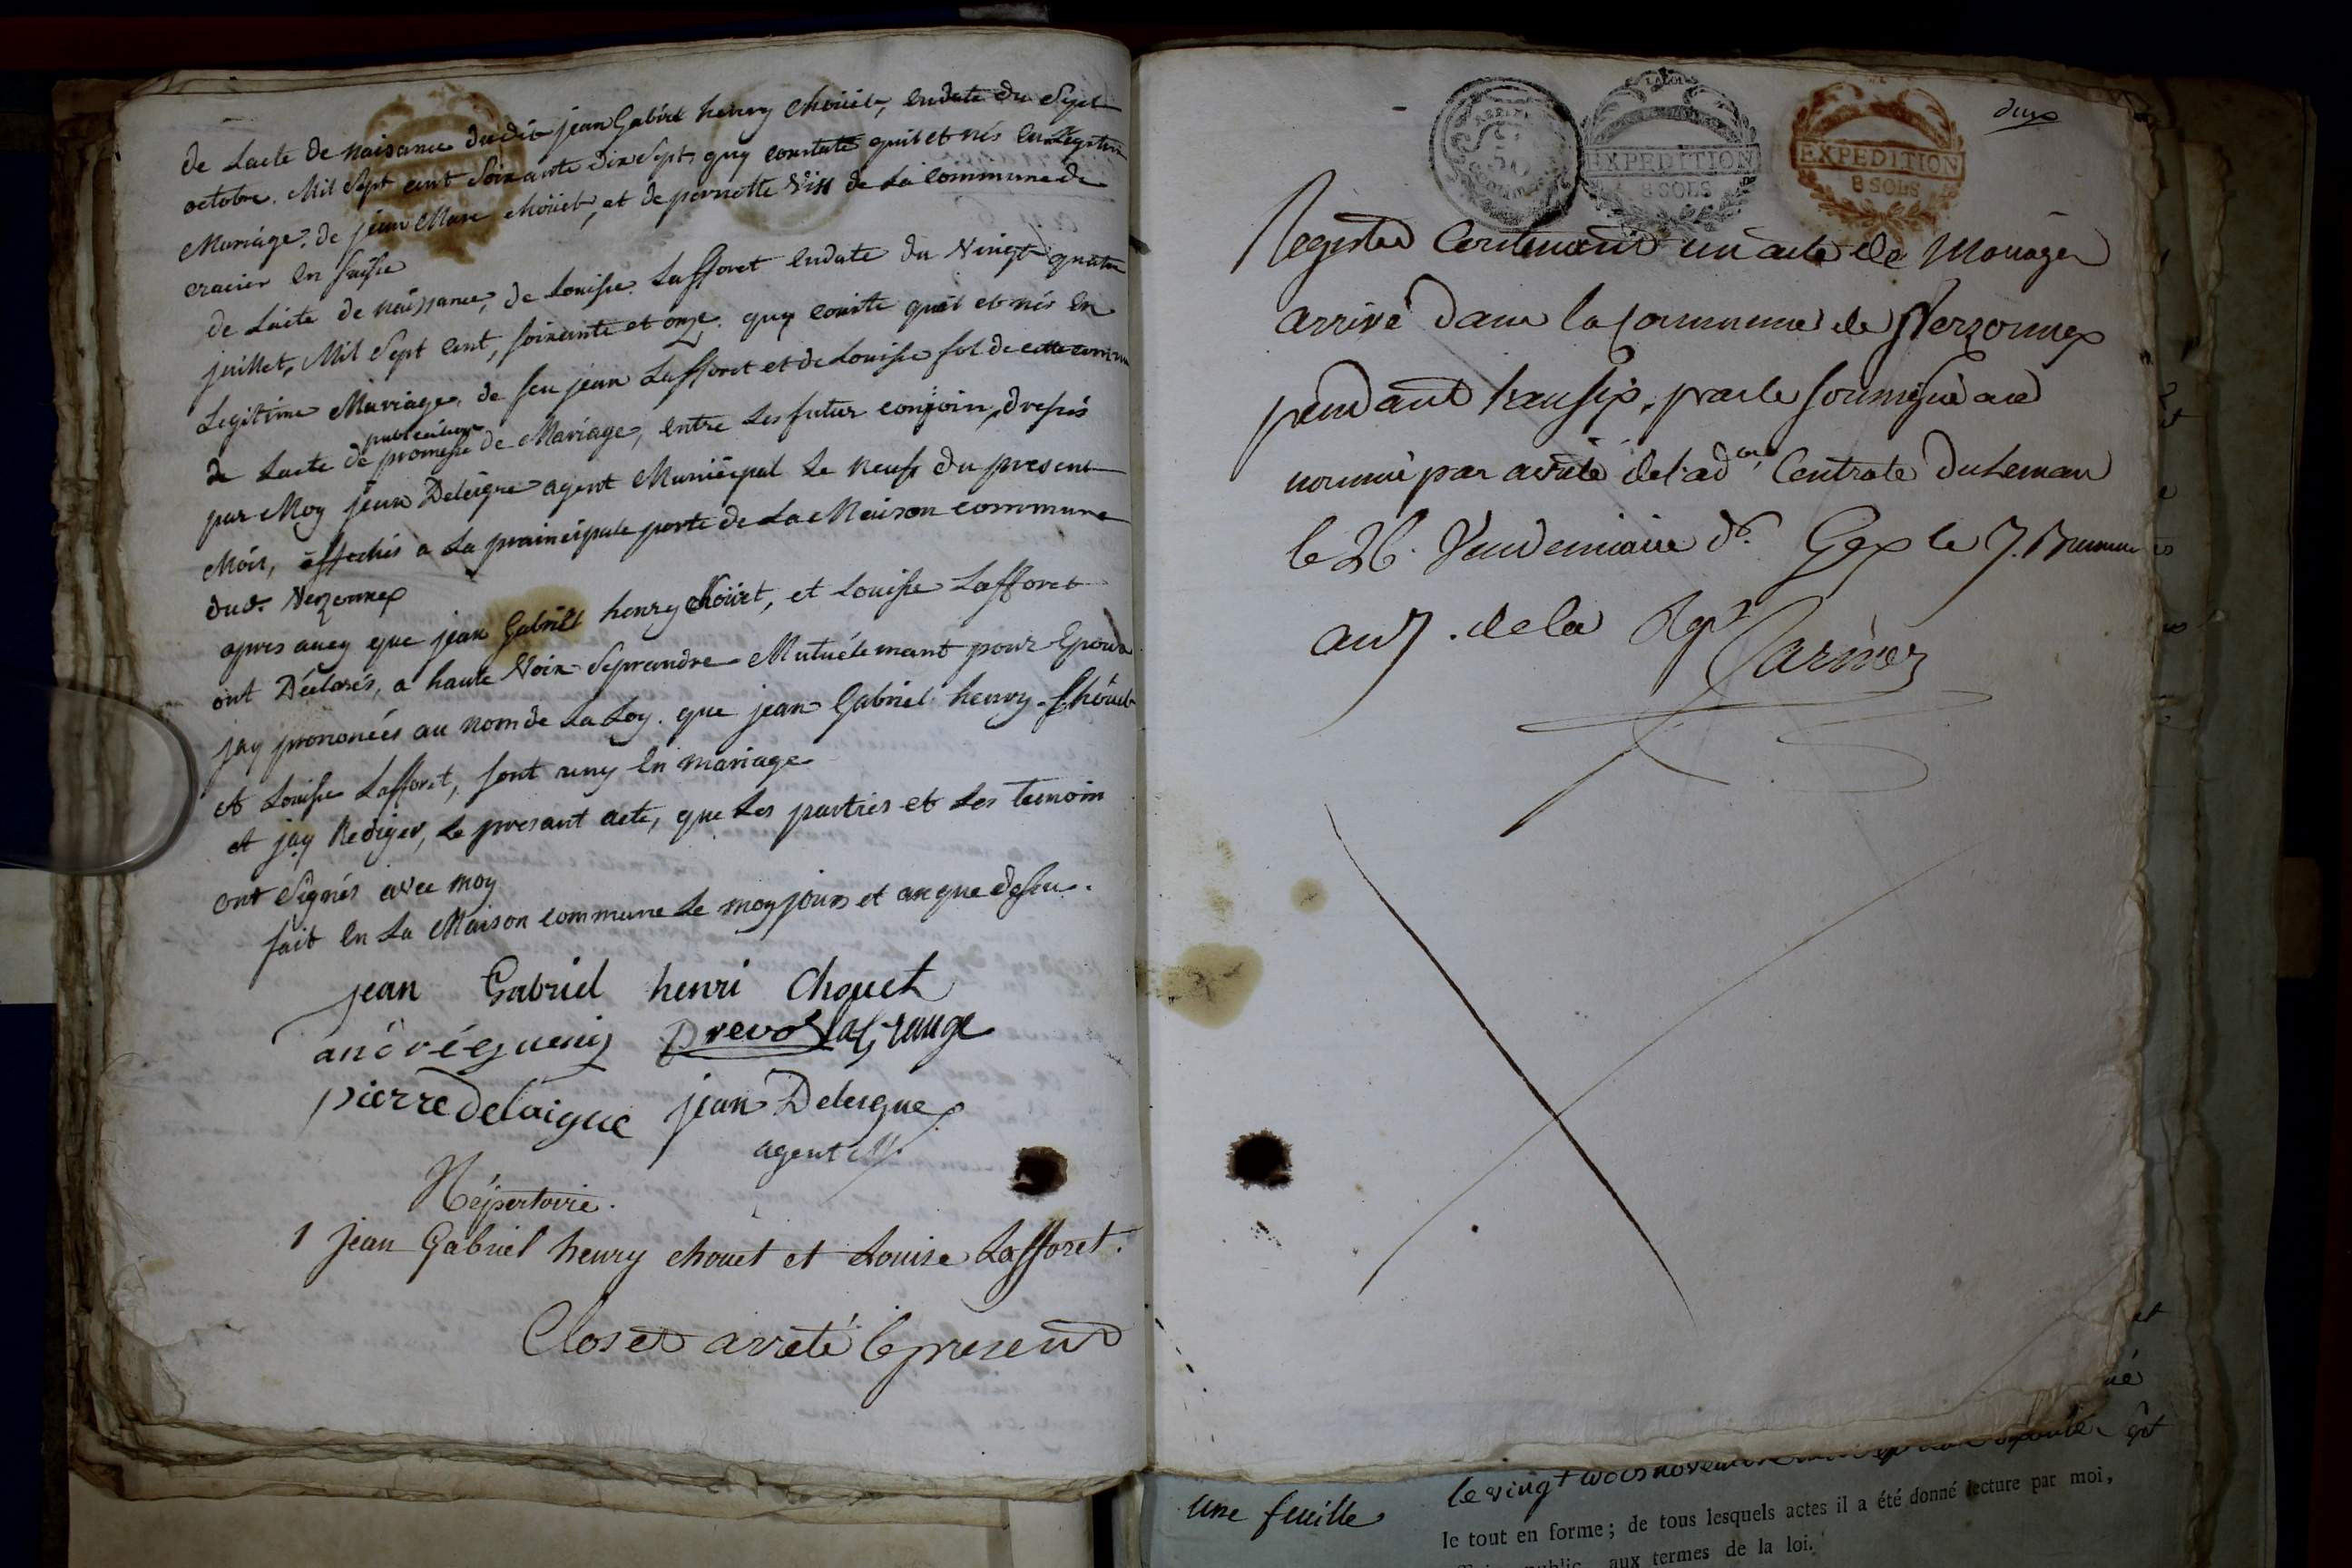 de Lacte de naisance dudit jean Gabriel henry Chouet, endate du Sept
octobre, Mil Sept cent Soixante dix Sept, quy constate quil et nés en Legitime
Mariage, de jean Marc Chouet, et de pernette Viss de La Commune de
cracier en Suisse
de Lacte de naissance, de Louise Lafforet endate du Vingt quatre
juillet, Mil Sept cent, soixante et onze, quy conste quil et nés en
Legitime Mariage, de feu jean Lafforet et de Louise fol de cette commune
de Lacte de publication promesse de Mariage, entre Les futur conjoin, dressés
par Moy jean Deleigue agent Municipal Le neuf du present
Mois, affichés a La prainsipale porte de La Maison commune
dud. Versonnex
apres aucy que jean Gabriel henry Chouet, et Louise Lafforet
ont Déclarés, a haute Voix Se prandre Mutuélemant pour Epoux
jay prononcés au nom de La Loy. que jean Gabriel henry Chouet
et Louise Lafforet, sont uny en mariage
et jay Rediger, Le presant acte, que Les partiés et Les temoin
ont Signés avec moy
fait en La Maison commune Le moy jours et an que desu.
jean Gabriel henri Chouet
andré guenij Prevos Lagrange
pierre delaigue jean Deleigue
agent M.
Répertoire.
1 Jean Gabriel henry chouet et Louise Lafforet.
Clos et arreté le present
deux
EXPEDITION
8 SOLS
LA LOI
EXPEDITION
8 SOLS
Registre Contenant un acte de Mariage
arrivé dans la Commune de Versonnex
pendant l'an six, par le soussigné
nommé par arrêté de l'ad.on Centrale du Leman
le 26. Vendemiaire d.r Gex le 7. Brumaire
an 7. de la Rep.
une feuille
le vingt trois novembre
le tout en forme ; de tous lesquels actes il a été donné lecture par moi,
public, aux termes de la loi.